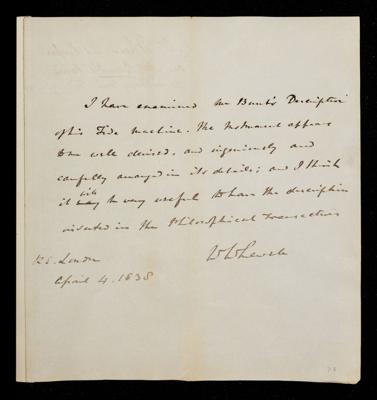 I have examined Mr Bunt's Description
of his Tide Machine. The Instrument appears
to me well devised, and ingeniously and
carefully arranged in its details; and I think
it will be very useful to have the description
inserted in the Philosophical Transactions
W Whewell
London
April 4. 1838